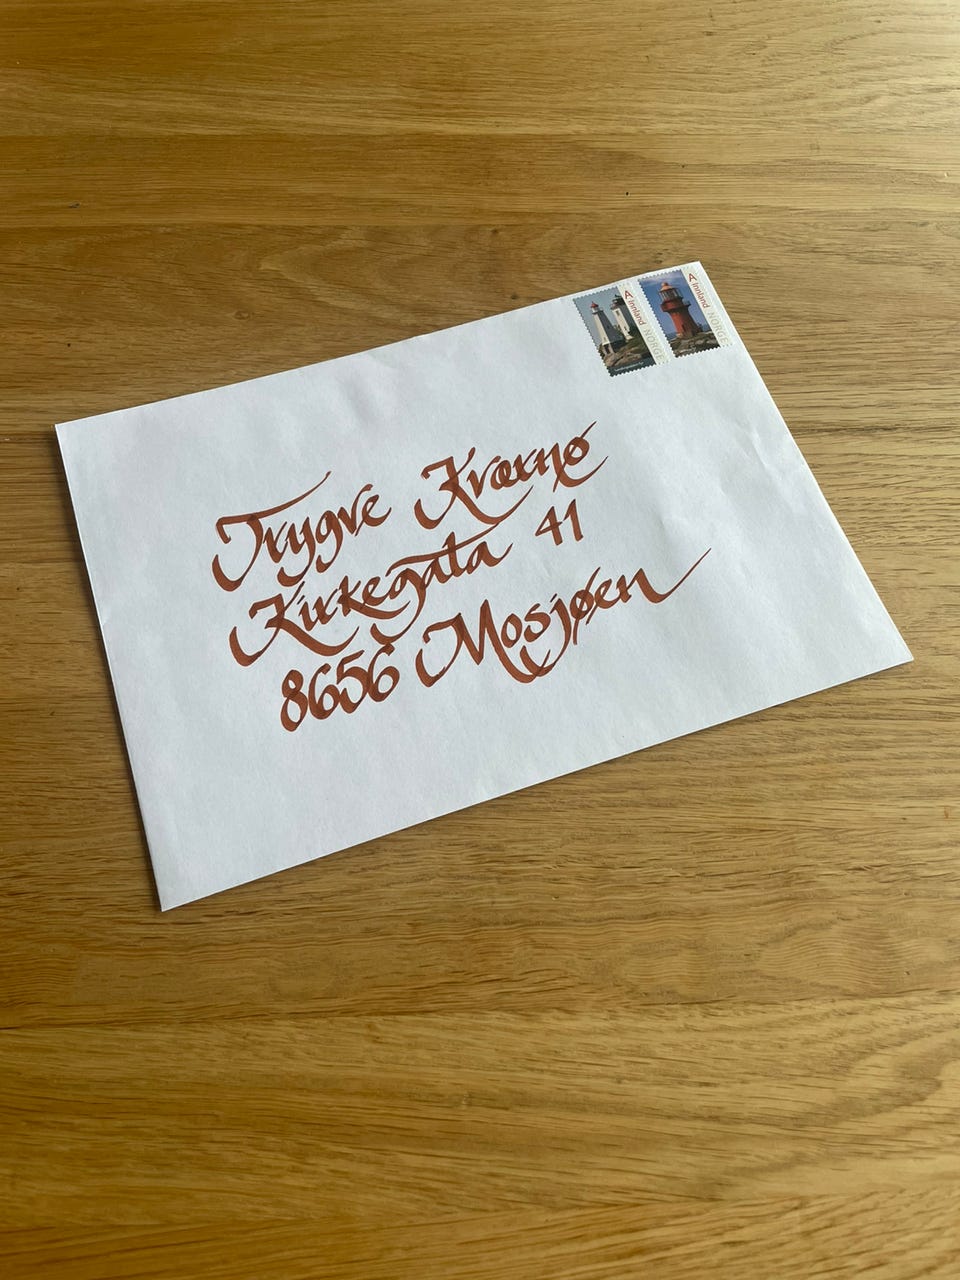 Trygve Kværnø
Kirkegata 41
8656 Mosjøen
A innland
NORGE
A innland
NORGE